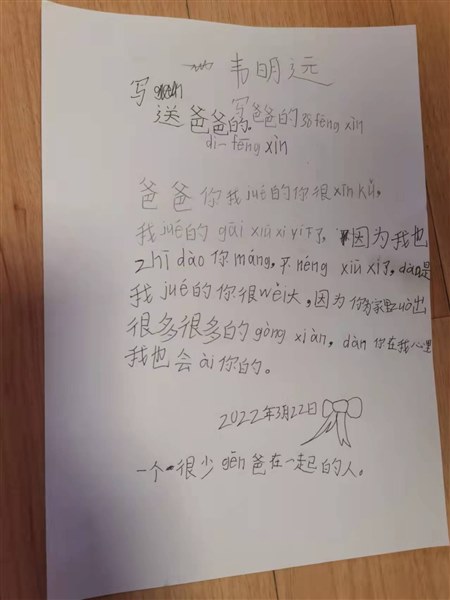 韦明远
写
送爸爸的 写爸爸的 fēng xìn
dì-fēng xìn
爸爸你我jué的你很xīn kǔ,
我jué的 gāi xiū xi yi下了,因为我也
zhī dào你máng,不néng xiū xi了,dàn是
我jué的你很wěi大,因为你为家里zuò出
很多很多的gòng xiàn,dàn你在我心里
我也会ài你的。
2022年3月22日
一个很少gēn爸在一起的人。